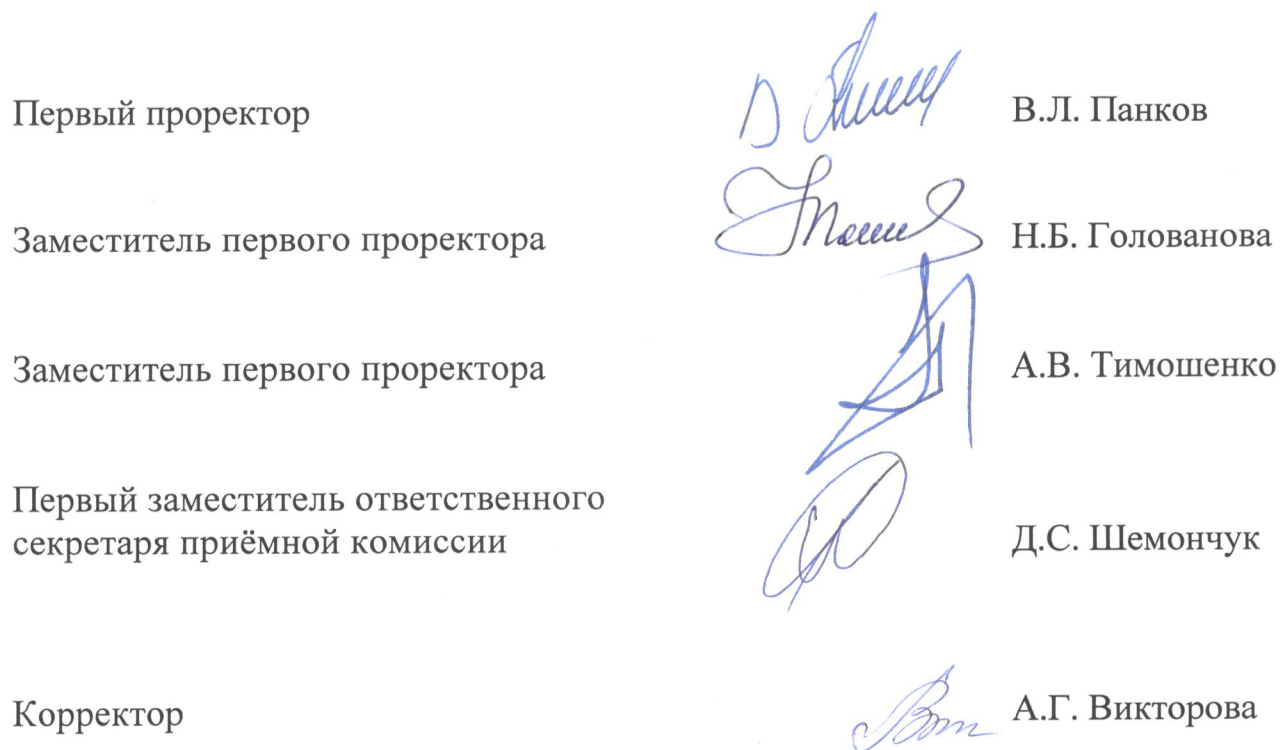 Первый проректор В.Л. Панков
Заместитель первого проректора Н.Б. Голованова
Заместитель первого проректора А.В. Тимошенко
Первый заместитель ответственного
секретаря приёмной комиссии Д.С. Шемончук
Корректор А.Г. Викторова